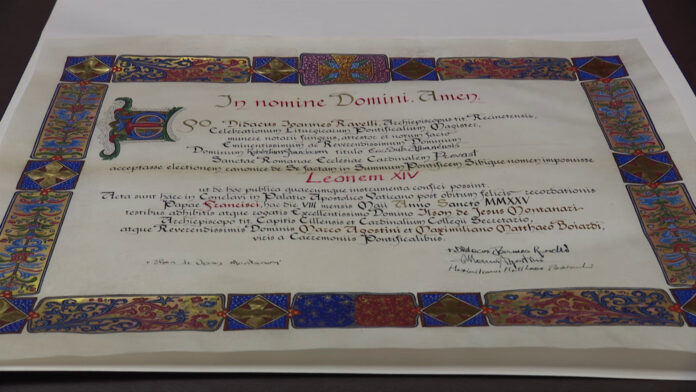 In nomine Domini. Amen.
Ego Didacus Ioannes Ravelli, Archiepiscopus tit. Recinetensis,
Celebrationum Liturgicarum Pontificalium Magister,
munere notarii fungens, attestor et notum facio
Eminentissimum ac Reverendissimum Dominum
Dominum Robertum Franciscum titulo Ecclesiae Albanensis
Sanctae Romanae Ecclesiae Cardinalem Prevost
acceptasse electionem canonice de Se factam in Summum Pontificem Sibique nomen imposuisse
Leonem XIV
ut de hoc publica quaecumque instrumenta confici possint.
Acta sunt haec in Conclavi in Palatio Apostolico Vaticano post obitum felicis recordationis
Papae Francisci, hac die VIII mensis Maii Anno Sancto MMXXV
testibus adhibitis atque rogatis Excellentissimo Domino Ilson de Jesus Montanari
Archiepiscopo tit. Capitis Cillensis et Cardinalium Collegii Secretario,
atque Reverendissimis Dominis Marco Agostini et Maximiliano Matthaeo Boiardi,
viris a Caeremoniis Pontificalibus.
+ Didacus Ioannes Ravelli
+ Ilson de Jesus Montanari
Marcus Agostini